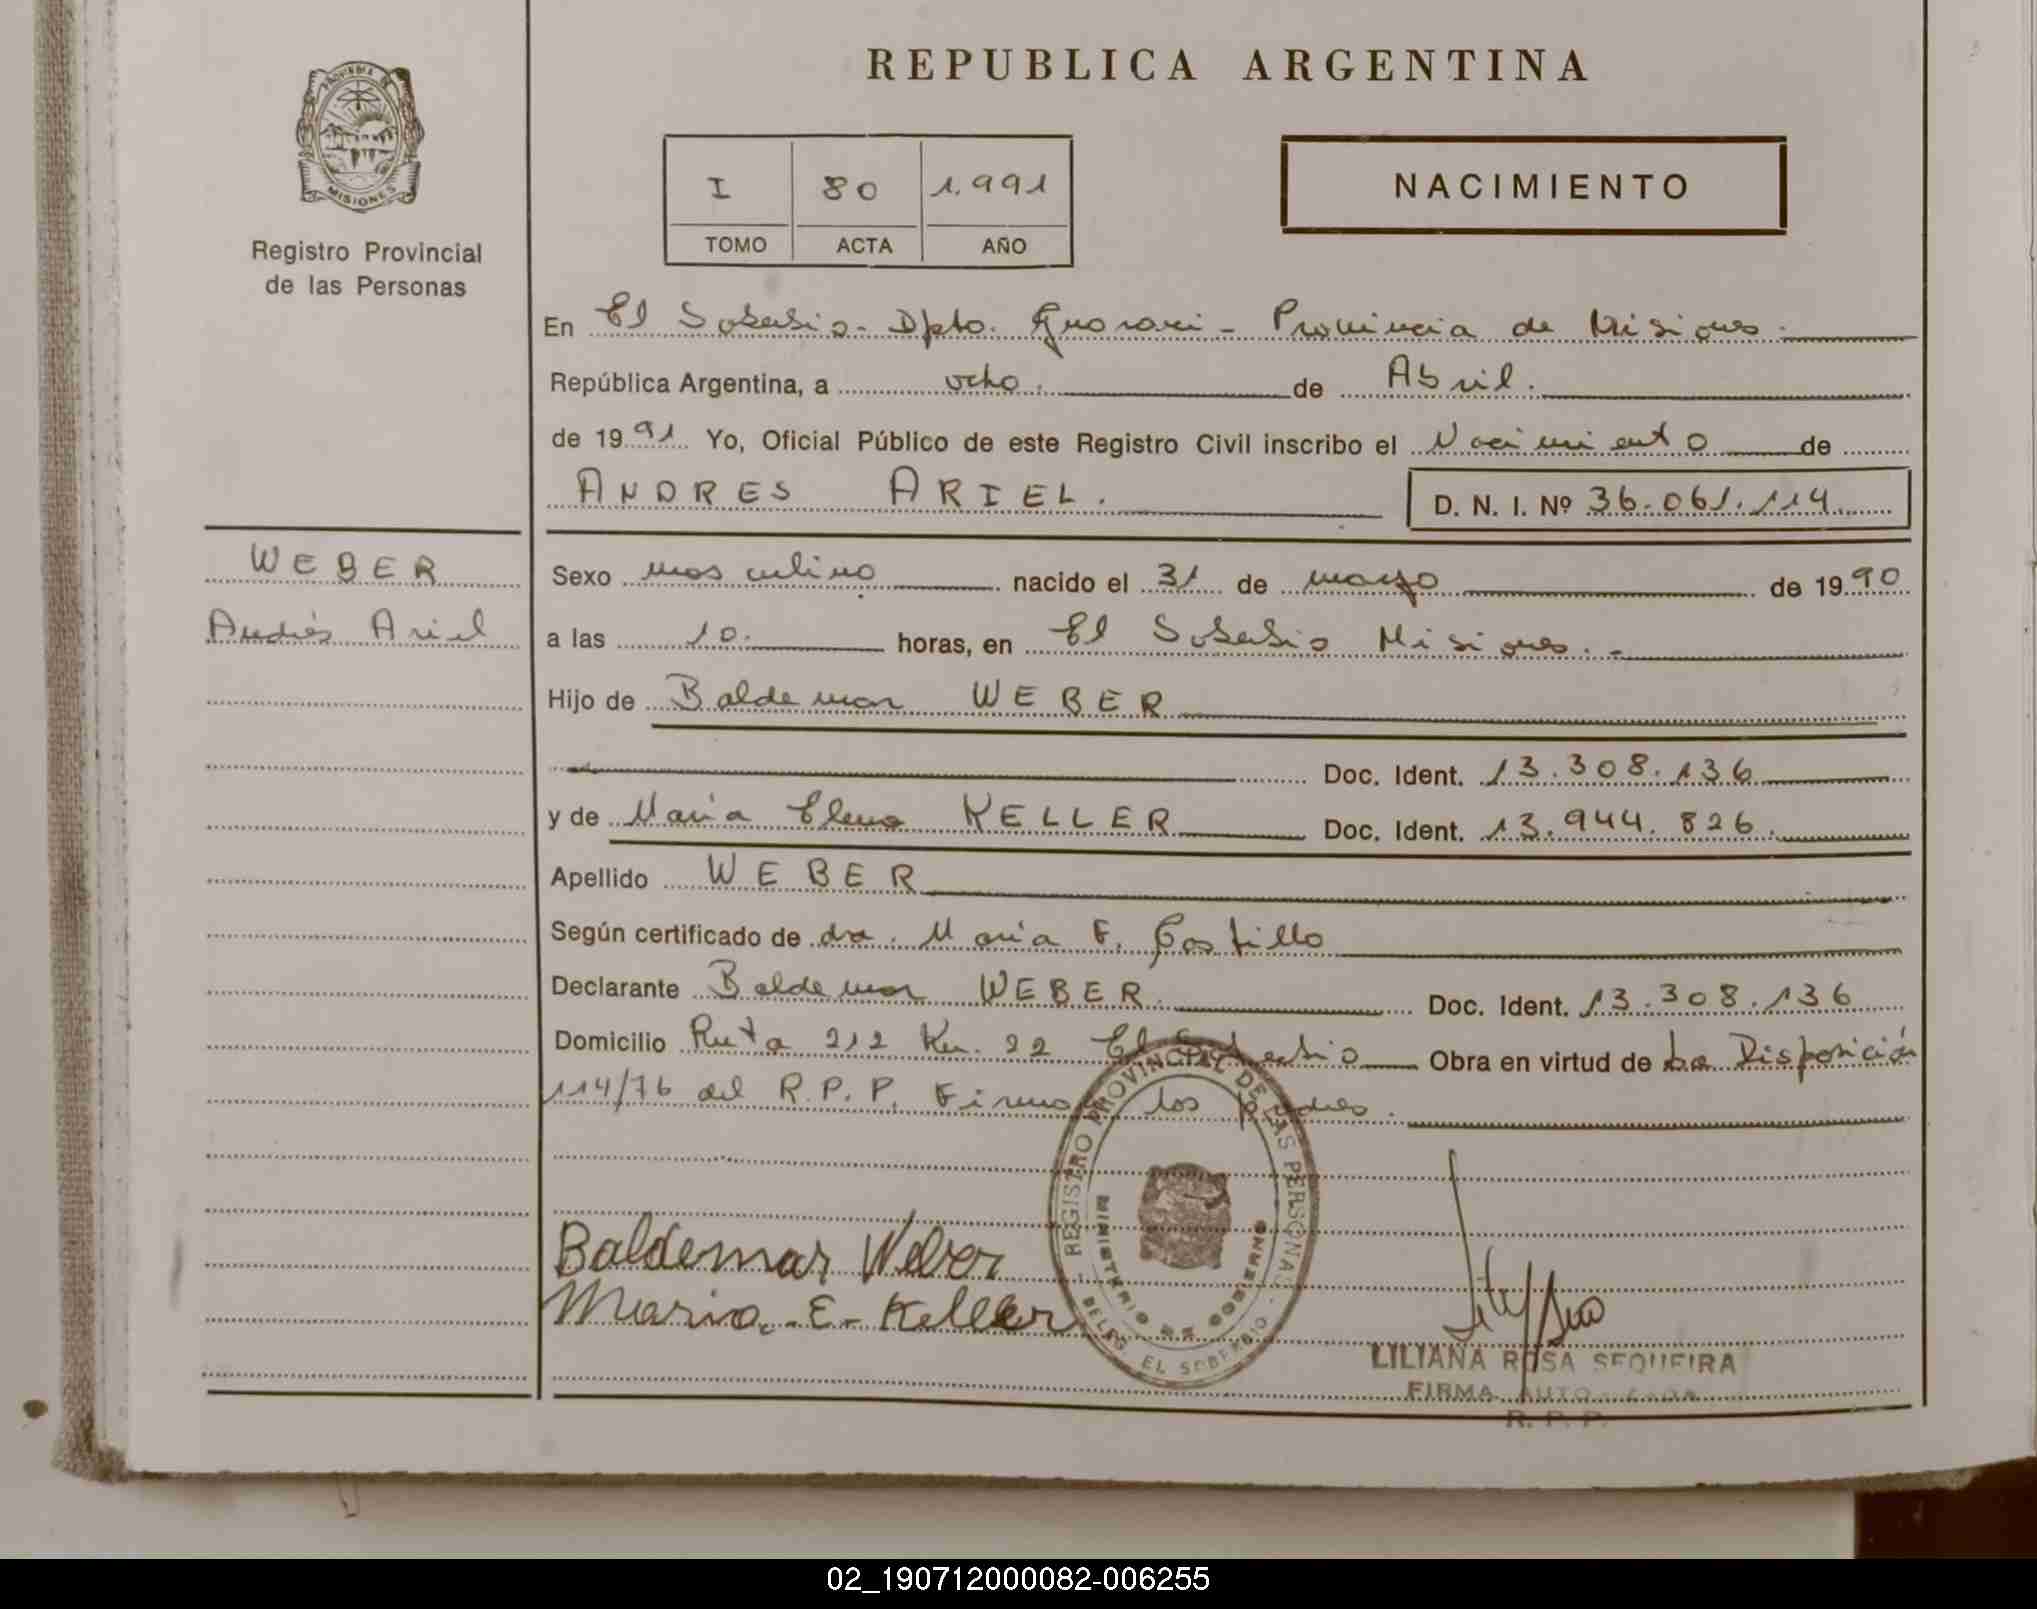 REPUBLICA ARGENTINA
PROVINCIA DE
MISIONES
Registro Provincial
de las Personas
I 80 1.991
TOMO ACTA AÑO
NACIMIENTO
En El Soberbio - Dpto. Guarani - Provincia de Misiones.
República Argentina, a ocho. de Abril.
de 1991 Yo, Oficial Público de este Registro Civil inscribo el Nacimiento de
ANDRES ARIEL.
D. N. I. Nº 36.061.114
WEBER
Andrés Ariel
Sexo masculino nacido el 31 de marzo de 1990
a las 10. horas, en El Soberbio Misiones. -
Hijo de Baldemar WEBER
Doc. Ident. 13.308.136
y de Maria Elena KELLER Doc. Ident. 13.944.826.
Apellido WEBER
Según certificado de dra. Maria E. Castillo
Declarante Baldemar WEBER. Doc. Ident. 13.308.136
Domicilio Ruta 212 Km. 22 El Soberbio Obra en virtud de La Disposición
114/76 del R.P.P. Firman los padres.
REGISTRO PROVINCIAL DE LAS PERSONAS
MINISTERIO DE GOBIERNO
DELEG. EL SOBERBIO
Baldemar Weber
Maria. E. Keller
LILIANA ROSA SEQUEIRA
FIRMA AUTORIZADA
R. P. P.
02_190712000082-006255